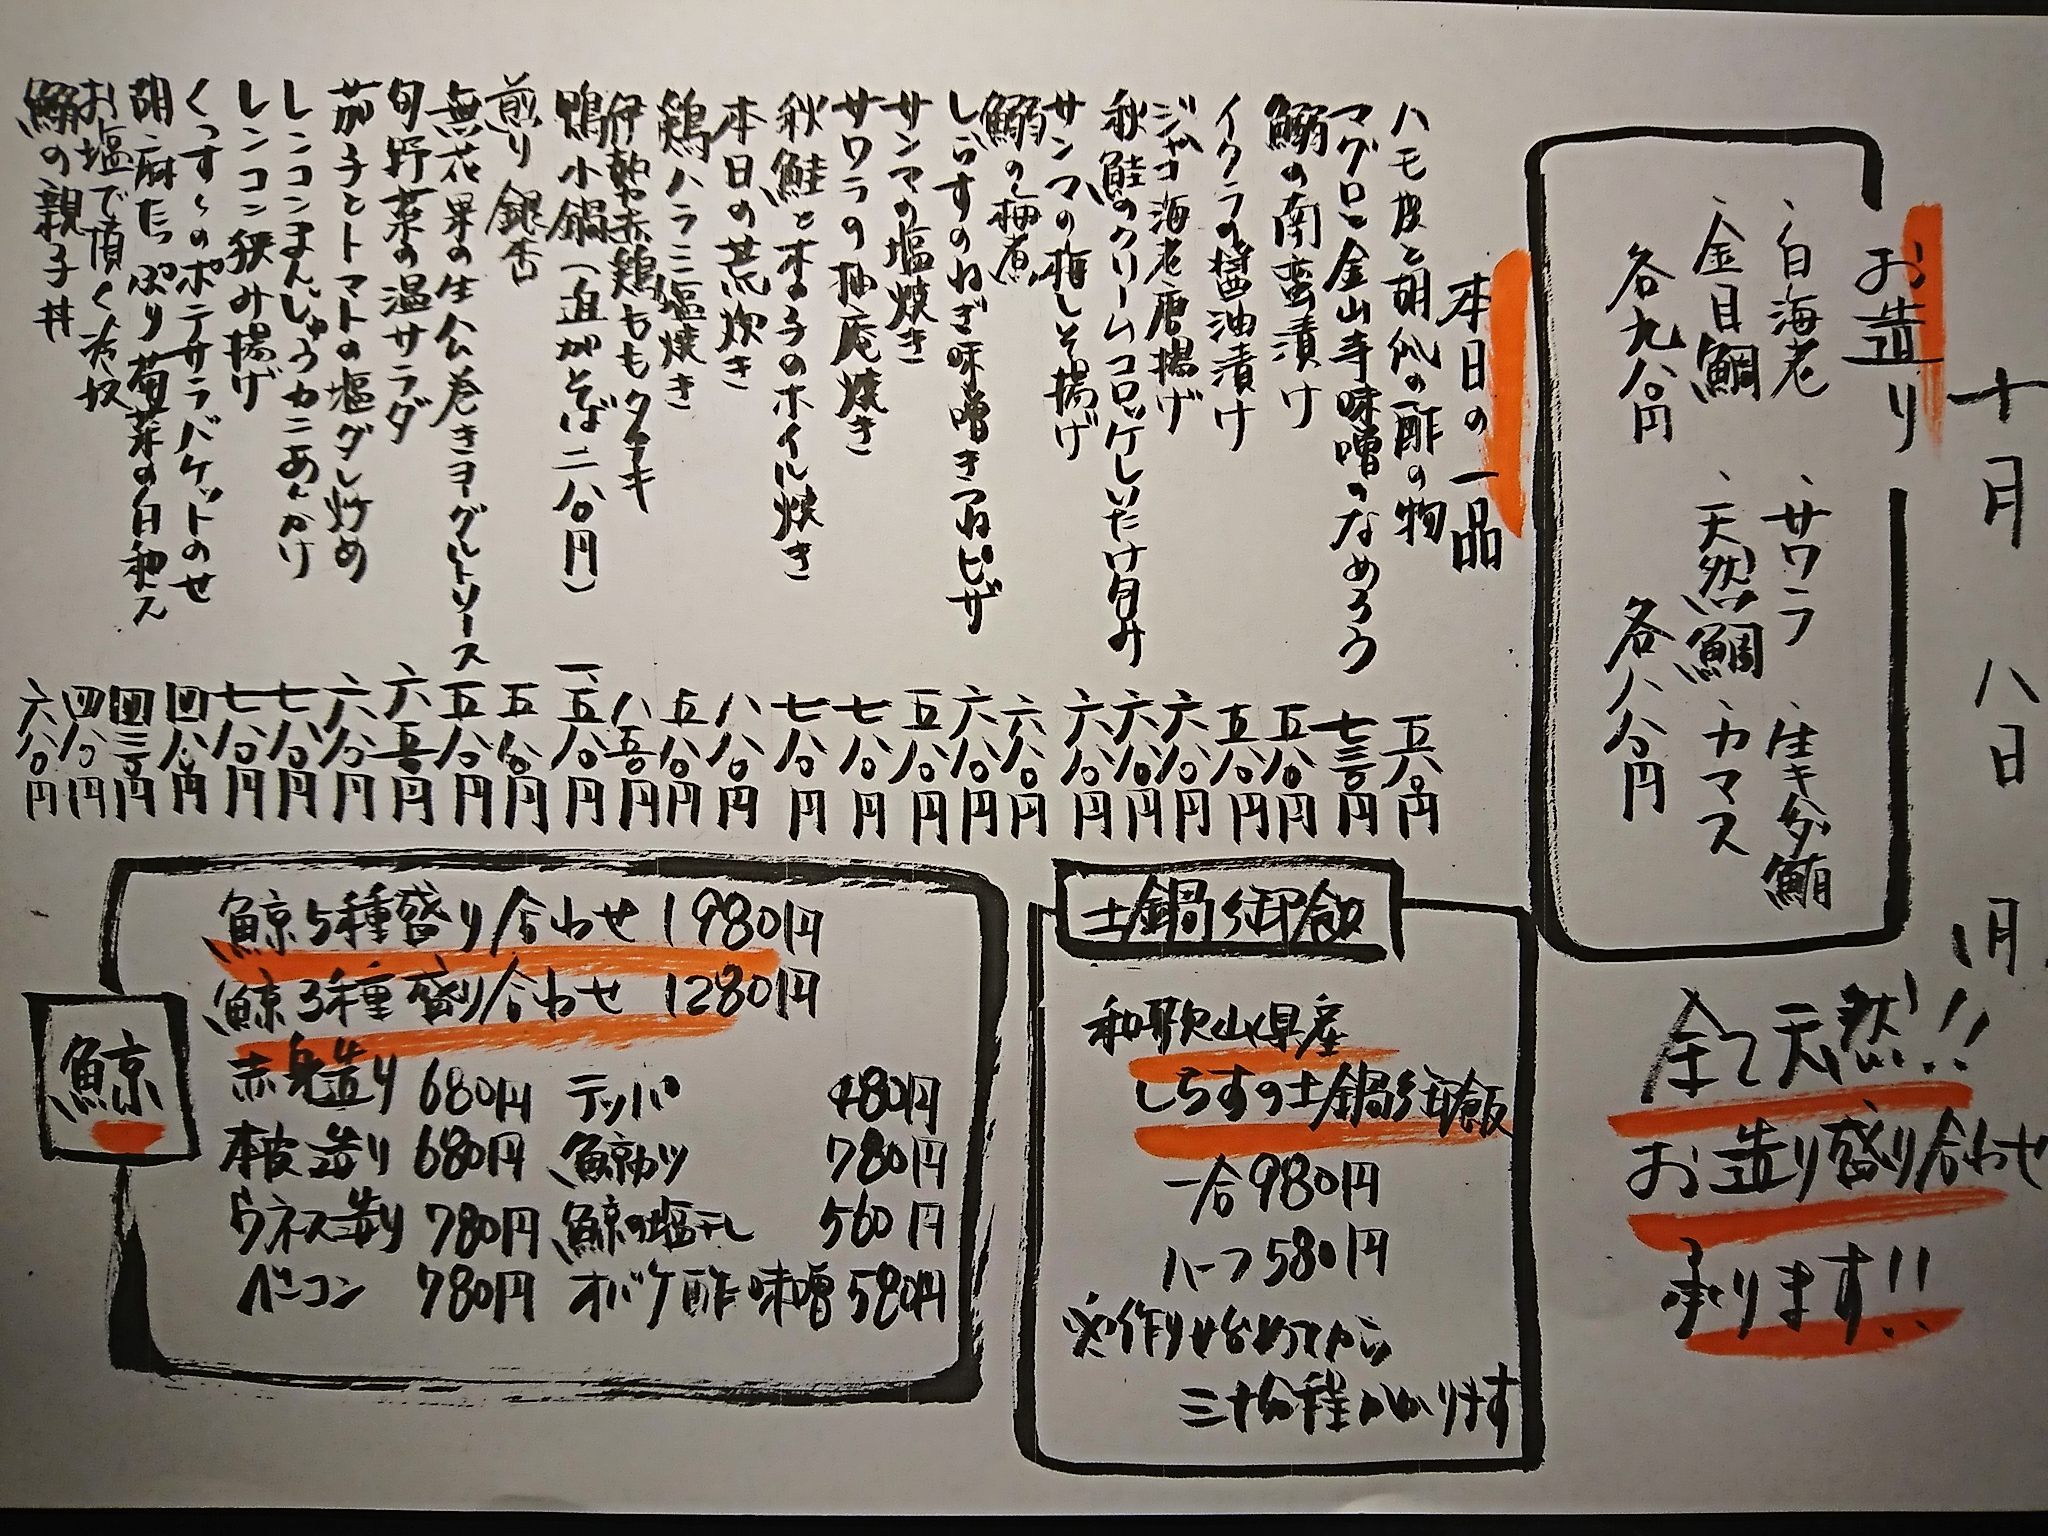 十月 八日 月
お造り
、白海老 、サワラ 、生キダ鮪
、金目鯛 、天然鯛 、カマス
各九八〇円 各八八〇円
全て天然!!
お造り盛り合わせ
承ります!!
本日の一品
ハモ皮と胡瓜の酢の物 五八〇円
マグロと金山寺味噌のなめろう 七三〇円
鰯の南蛮漬け 五八〇円
イクラの醤油漬け 五八〇円
ジャコ海老唐揚げ 六八〇円
秋鮭のクリームコロッケしいたけ包み 六八〇円
サンマの梅しそ揚げ 六八〇円
鰯の梅煮 六八〇円
しらすのねぎ味噌きつねピザ 六八〇円
サンマの塩焼き 五八〇円
サワラの柚庵焼き 七八〇円
秋鮭ときのこのホイル焼き 七八〇円
本日の荒炊き 八八〇円
鶏ハラミ塩焼き 五八〇円
伊勢赤鶏ももタタキ 八五〇円
鴨小鍋(追がそば二八〇円) 一、五八〇円
煎り銀杏 五八〇円
無花果の生公巻きヨーグルトソース 五八〇円
旬野菜の温サラダ 六五〇円
茄子とトマトの塩ダレ炒め 六八〇円
レンコンまんじゅうカニあんかけ 七八〇円
レンコン挟み揚げ 七八〇円
くっすぅのポテサラバケットのせ 四八〇円
胡麻たっぷり菊菜の白和え 四三〇円
お塩で頂く冷奴 四八〇円
鰯の親子丼 六八〇円
土鍋御飯
和歌山県産
しらすの土鍋御飯
一合980円
ハーフ580円
※作り始めてから
三十分程かかります
鯨
鯨5種盛り合わせ 1980円
鯨3種盛り合わせ 1280円
赤身造り 680円 テッパ 480円
本皮造り 680円 鯨カツ 780円
ウネス造り 780円 鯨の塩干し 560円
ベーコン 780円 オバケ酢味噌 580円